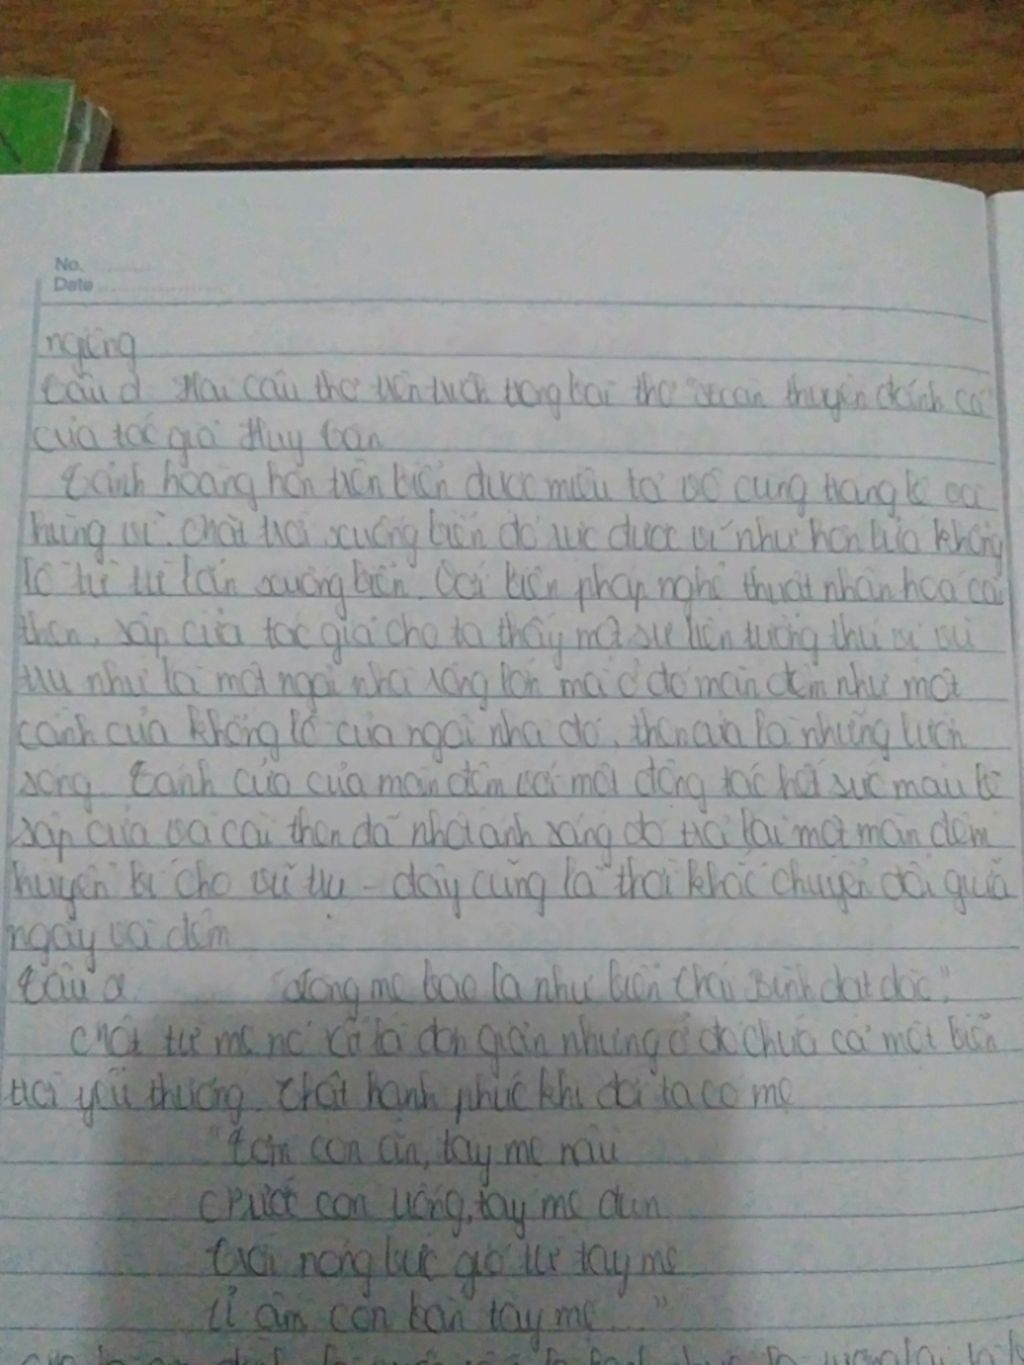 No.
Date
ngừng
Câu 2 Hai câu thơ trên trích trong bài thơ "Đoàn thuyền đánh cá"
của tác giả Huy Cận
Cảnh hoàng hôn trên biển được miêu tả vô cùng tráng lệ và
hùng vĩ. Mặt trời xuống biển đỏ rực được ví như hòn lửa khổng
lồ từ từ lặn xuống biển. Với biện pháp nghệ thuật nhân hoá cài
then, sập cửa tác giả cho ta thấy một sự liên tưởng thú vị vũ
trụ như là một ngôi nhà rộng lớn mà ở đó màn đêm như một
cánh cửa khổng lồ của ngôi nhà đó, then cửa là những lượn
sóng. Cánh cửa của màn đêm với một động tác hết sức mau lẹ
sập cửa và cài then đã nhốt ánh sáng đó trả lại một màn đêm
huyền bí cho vũ trụ - đây cũng là thời khắc chuyển đổi giữa
ngày và đêm
Câu 2 "Lòng mẹ bao la như biển Thái Bình dạt dào"
Một từ mẹ nó rất là đơn giản nhưng ở đó chứa cả một biển
trời yêu thương. Thật hạnh phúc khi đời ta có mẹ
"Cơm con ăn, tay mẹ nấu
Nước con uống, tay mẹ đun
Trời nóng bức gió từ tay mẹ
ủ ấm con bàn tay mẹ..."